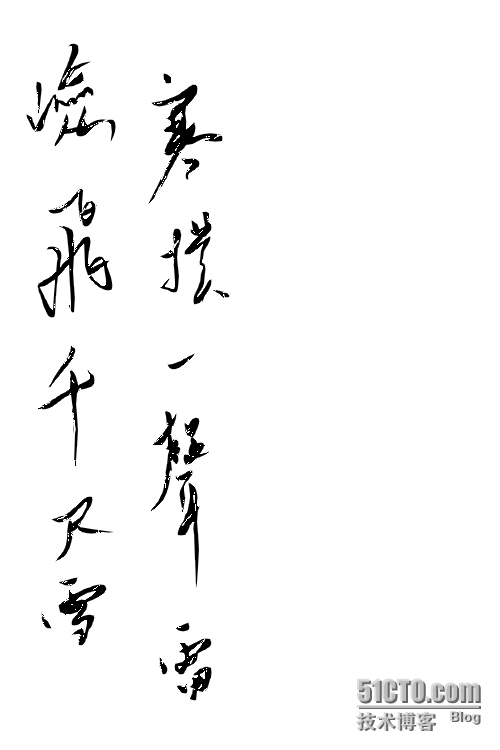 寒撲一聲雷
險飛千尺雪
51CTO.com
技术博客 Blog